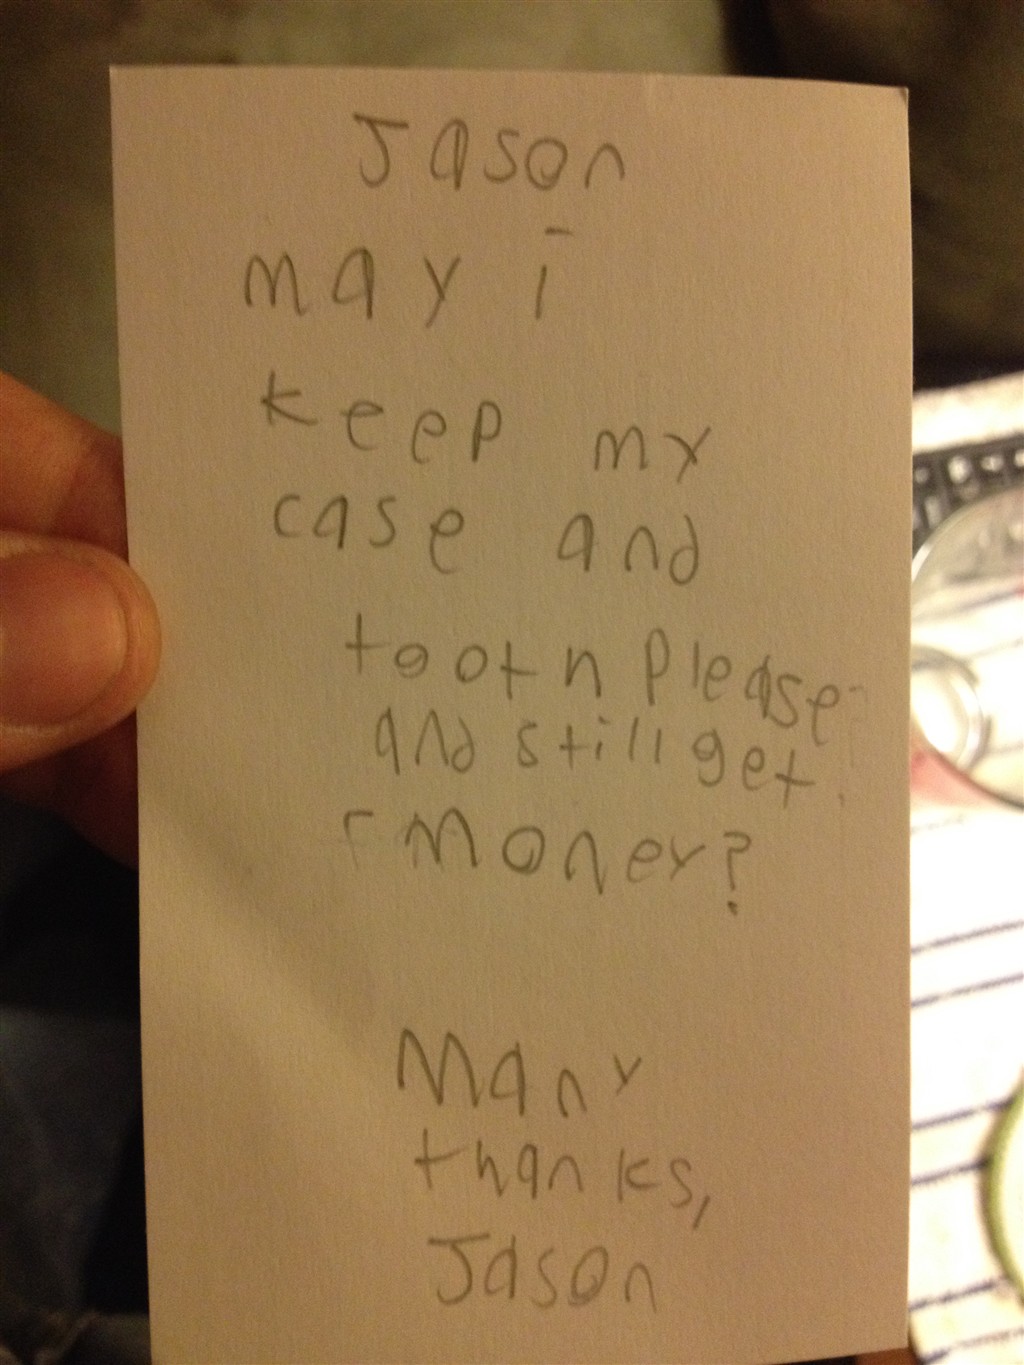 Jason
may i
keep my
case and
tooth please
and still get
money?
Many
thanks,
Jason